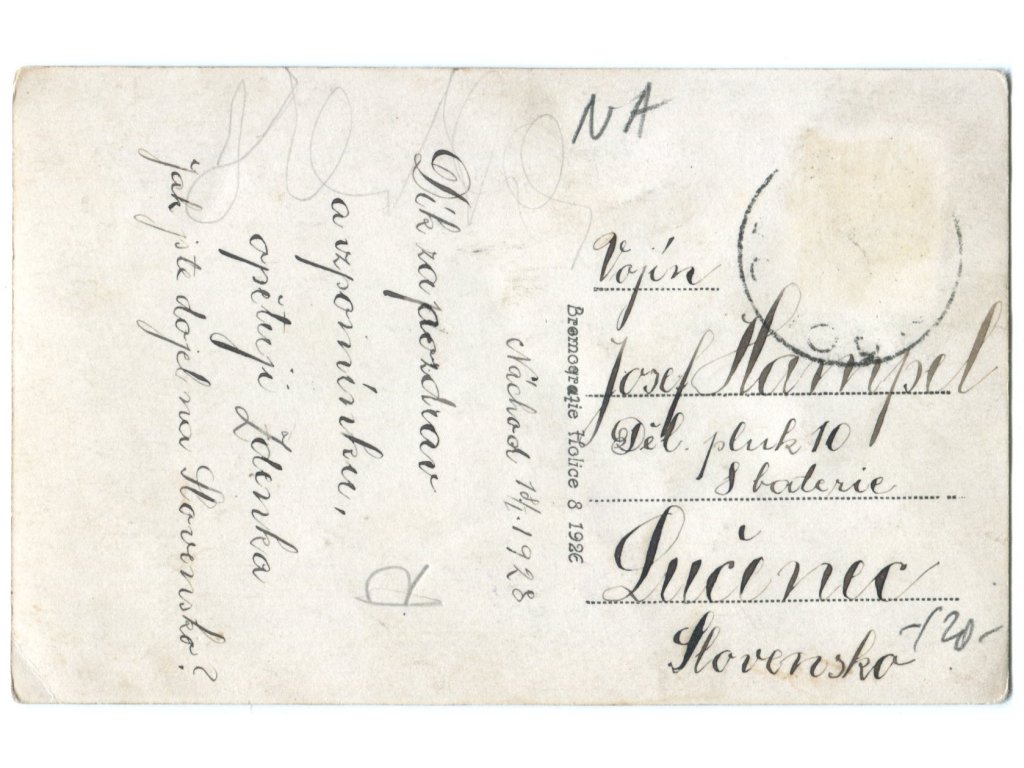 NA
Dík za pozdrav
a vzpomínku,
opětuji Zdenka
Jak jste dojel na Slovensko?
Náchod 18/1.1928
R
Bromografie Holice 8 1926
Vojín
Josef Štampel
Děl. pluk 10
8 baterie
Lučenec
Slovensko
-/20-